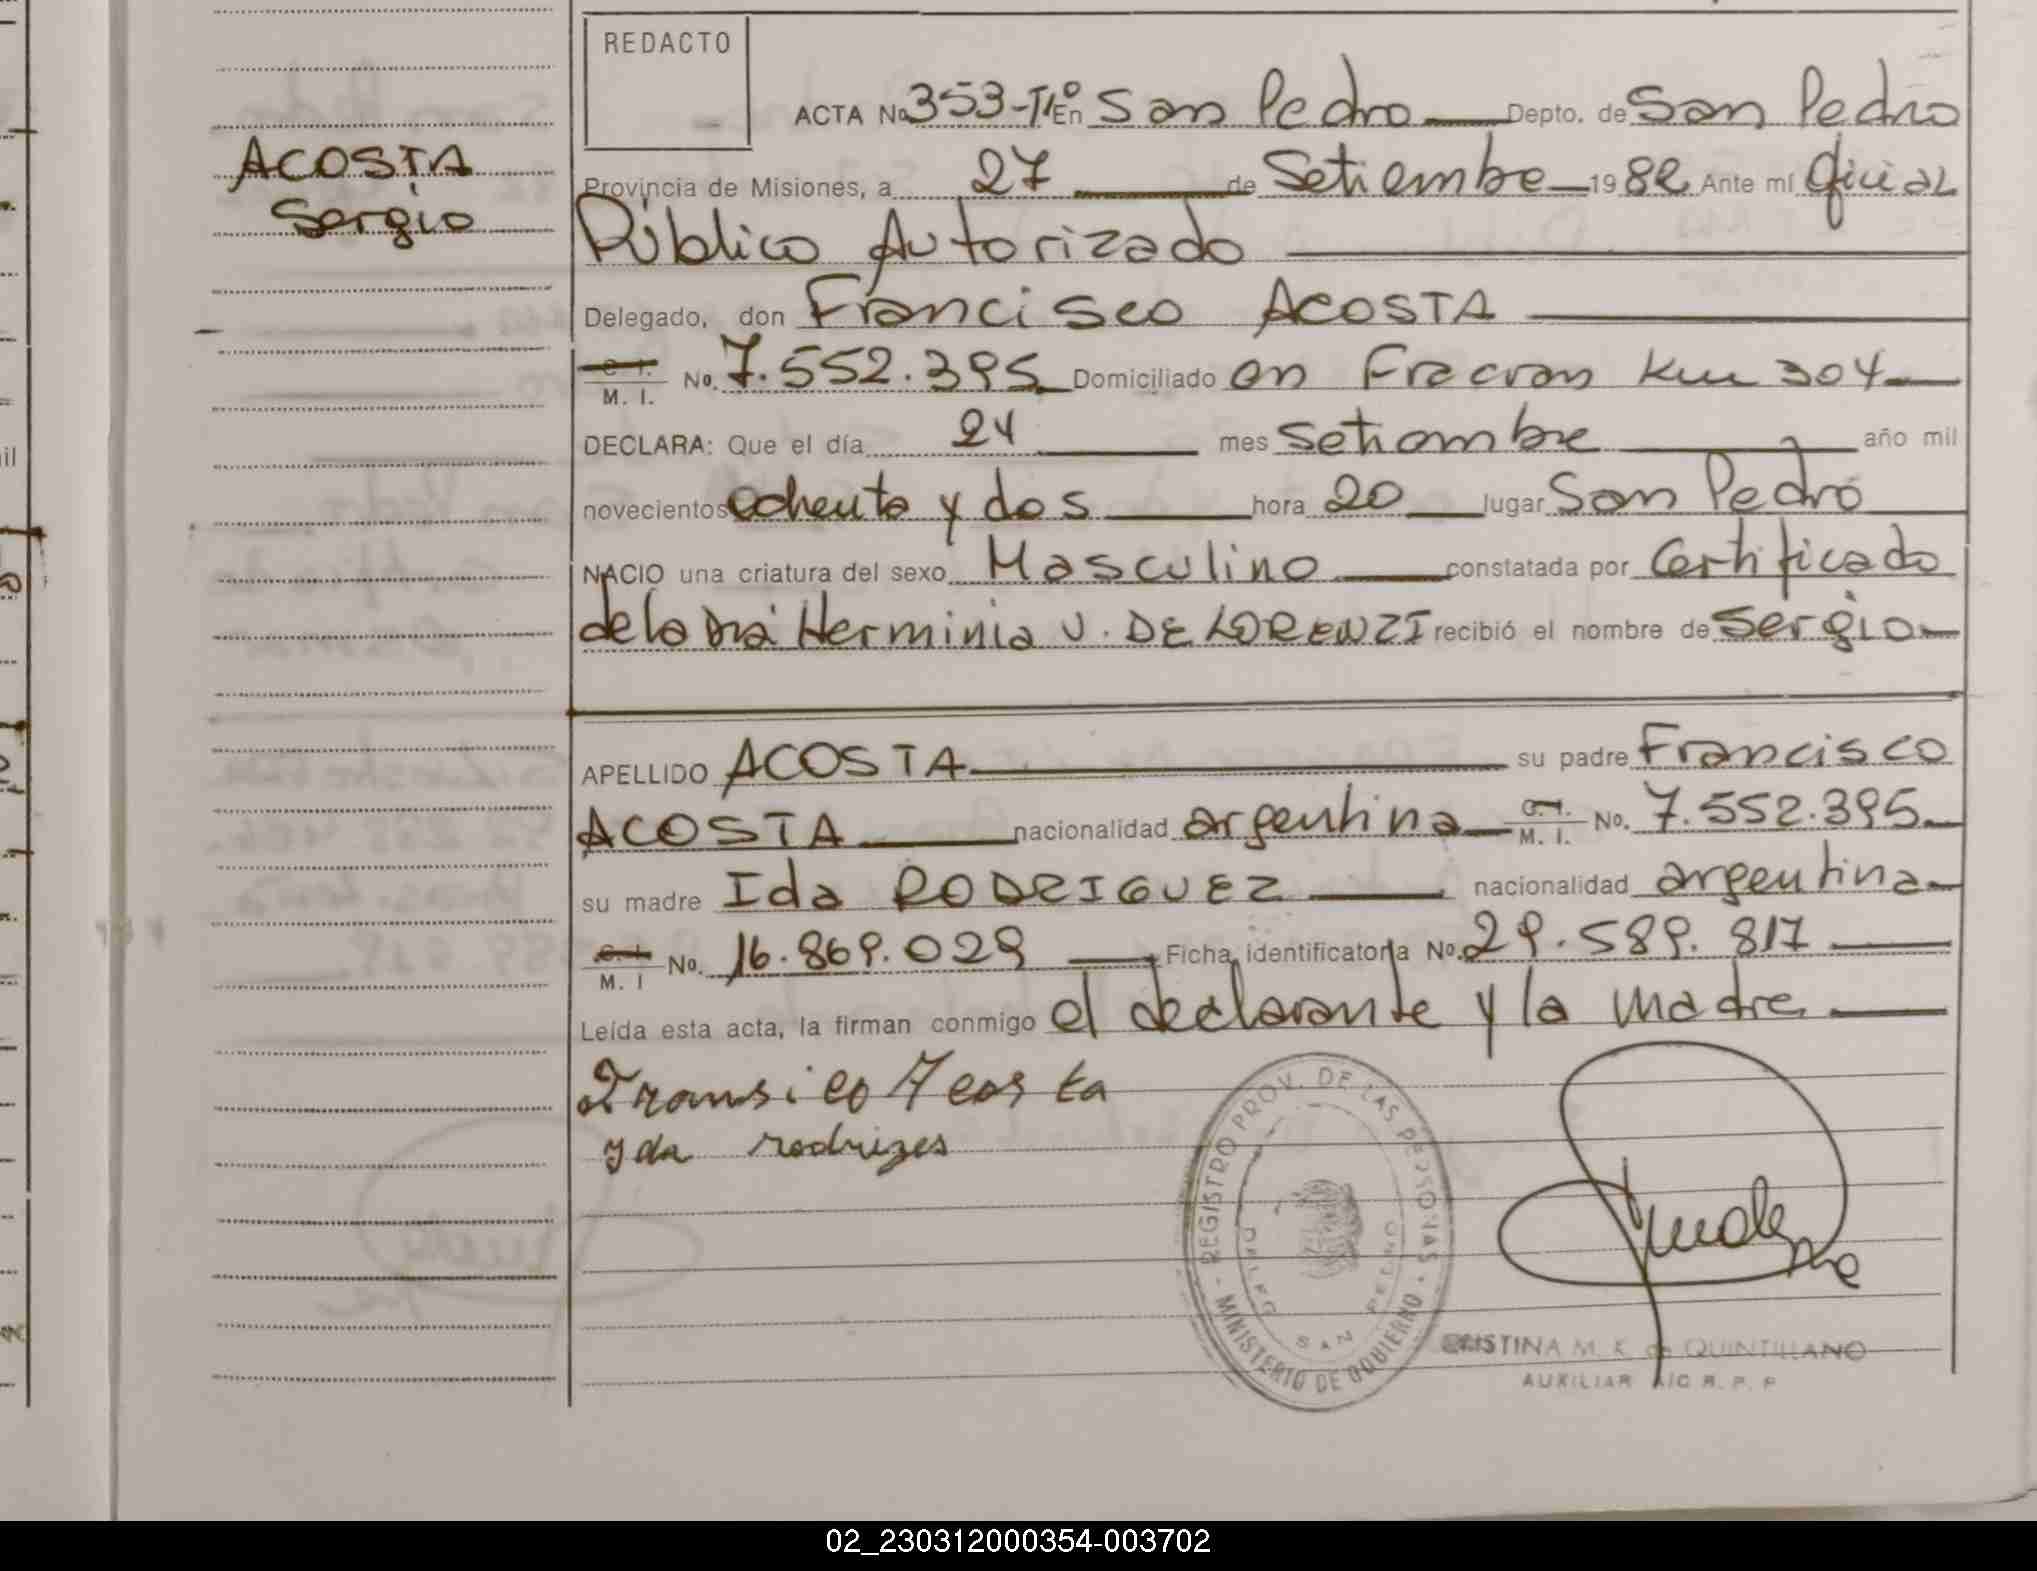 REDACTO
ACTA No 353-Tº1º En San Pedro Depto. de San Pedro
ACOSTA
Sergio
Provincia de Misiones, a 27 de Setiembre 1982 Ante mí Oficial
Público Autorizado
Delegado, don Francisco ACOSTA
C. I.
M. I. No. 7.552.395 Domiciliado en Fracran Km 304
DECLARA: Que el día 24 mes setiembre año mil
novecientos ochenta y dos hora 20 lugar San Pedro
NACIO una criatura del sexo Masculino constatada por Certificado
de la Dra Herminia V. DE LORENZI recibió el nombre de Sergio
APELLIDO ACOSTA su padre Francisco
ACOSTA nacionalidad argentina C. I. M. I. No. 7.552.395
su madre Ida RODRIGUEZ nacionalidad argentina
C. I.
M. I No. 16.869.029 Ficha identificatoria No. 29.589.817
Leída esta acta, la firman conmigo el declarante y la madre
Fransico Acosta
yda rodrizes
REGISTRO PROV. DE LAS PERSONAS
MINISTERIO DE GOBIERNO
DELEG SAN PEDRO
CRISTINA M. K. de QUINTILLANO
AUXILIAR A/C R. P. P
02_230312000354-003702